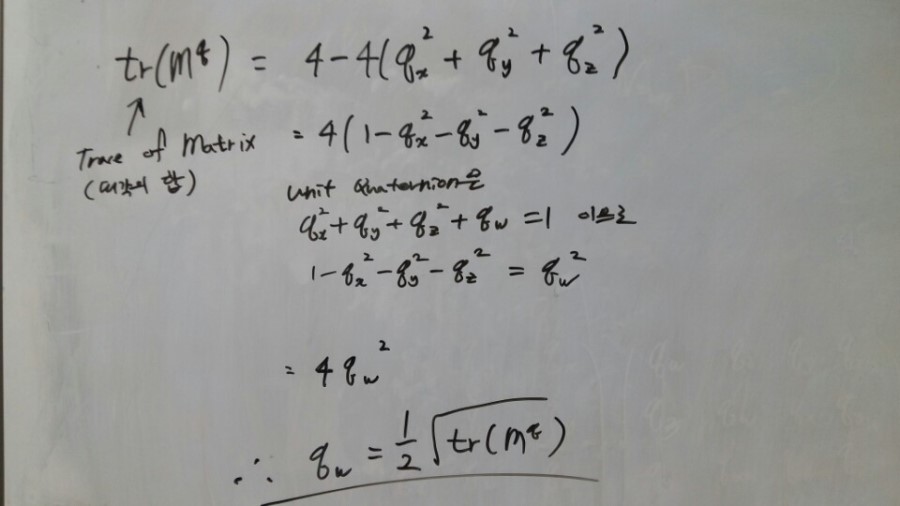 tr(M^q) = 4-4(q_x^2 + q_y^2 + q_z^2)
Trace of Matrix = 4(1-q_x^2-q_y^2-q_z^2)
(대각의 합)
unit quaternion은
q_x^2+q_y^2+q_z^2+q_w=1 이므로
1-q_x^2-q_y^2-q_z^2 = q_w^2
= 4q_w^2
∴ q_w = 1/2 √tr(M^q)